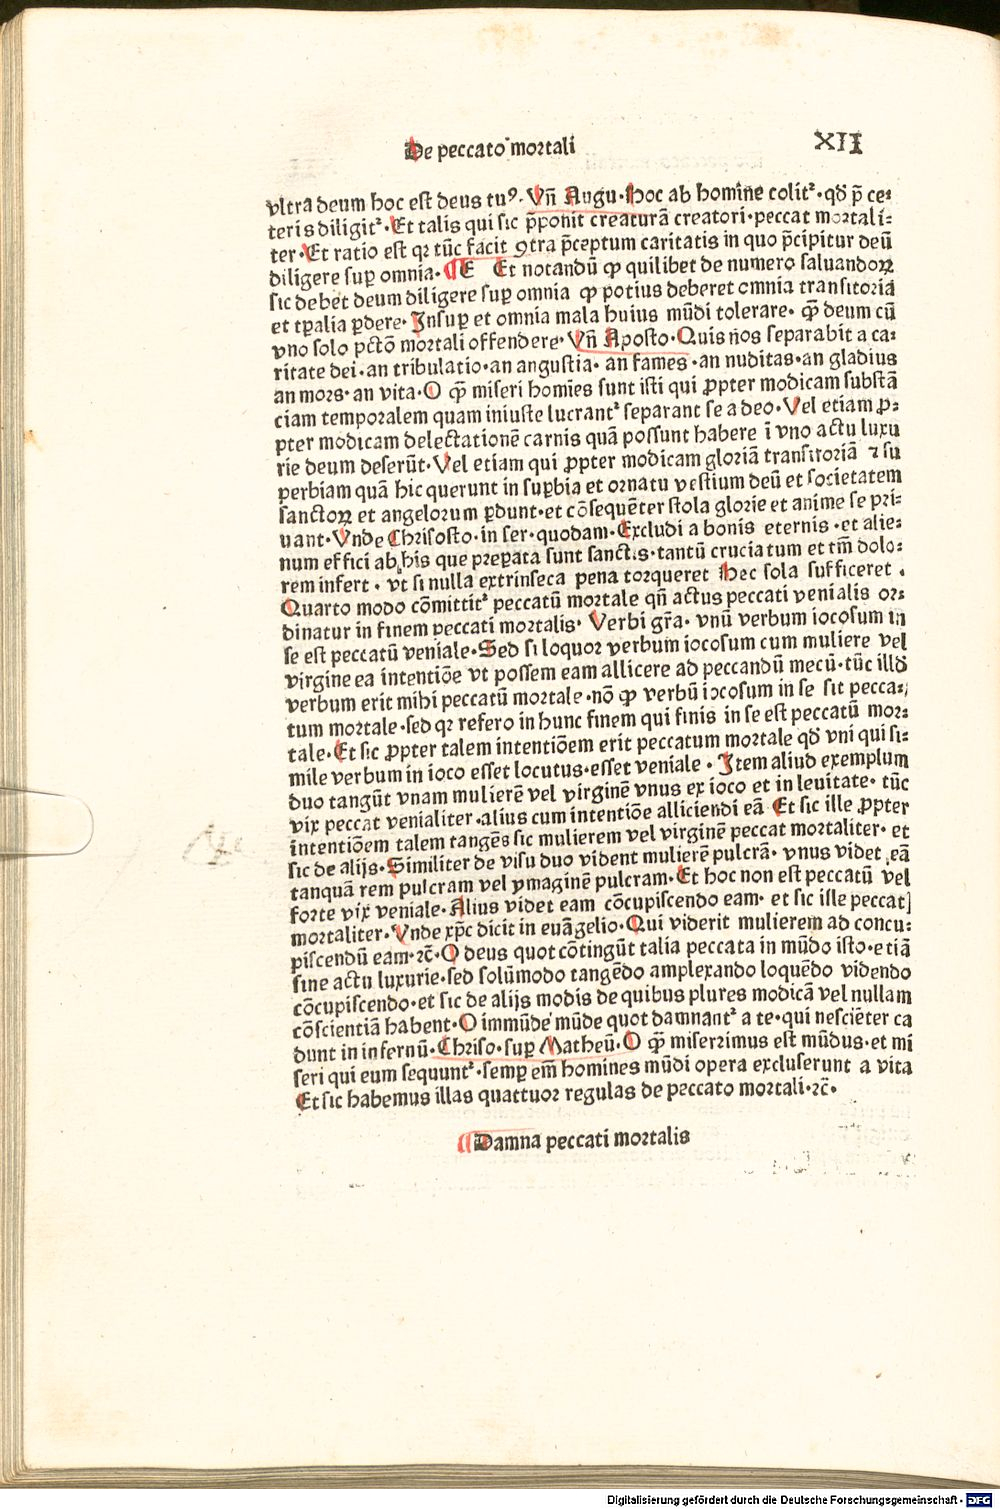 De peccato mortali
XII
vltra deum hoc est deus tuꝰ. Vñ Augu. Hoc ab homine colitᷣ. qđ p̄ ce⸗
teris diligitᷣ. Et talis qui sic p̄ponit creaturā creatori. peccat mortali⸗
ter. Et ratio est qꝛ tūc facit ꝯtra p̄ceptum caritatis in quo p̄cipitur deū
diligere suꝑ omnia. ¶ E Et notandū ꝙ quilibet de numero saluandoꝝ
sic debet deum diligere suꝑ omnia ꝙ potius deberet omnia transitoria
et tꝑalia ꝑdere. Insuꝑ et omnia mala huius mūdi tolerare. ꝙ̄ deum cū
vno solo pctō mortali offendere. Vñ Aposto. Quis nos separabit a ca⸗
ritate dei. an tribulatio. an angustia. an fames. an nuditas. an gladius
an mors. an vita. O ꝙ̄ miseri homīes sunt isti qui ꝓpter modicam substā
ciam temporalem quam iniuste lucrantᷣ separant se a deo. Vel etiam ꝓ⸗
pter modicam delectationē carnis quā possunt habere ī vno actu luxu
rie deum deserūt. Vel etiam qui ꝓpter modicam gloriā transitoriā ⁊ su
perbiam quā hic querunt in suꝑbia et ornatu vestium deū et societatem
sanctoꝝ et angelorum ꝑdunt. et cōsequēter stola glorie et anime se pri⸗
uant. Vnde Chrisosto. in ser. quodam. Excludi a bonis eternis. et alie⸗
num effici ab his que preparata sunt sanctis. tantū cruciatum et tm̄ dolo⸗
rem infert. vt si nulla extrinseca pena torqueret Hec sola sufficeret.
Quarto modo cōmittitᷣ peccatū mortale qñ actus peccati venialis or⸗
dinatur in finem peccati mortalis. Verbi gr̄a. vnū verbum iocosum in
se est peccatū veniale. Sed si loquor verbum iocosum cum muliere vel
virgine ea intentiōe vt possem eam allicere ad peccandū mecū. tūc illđ
verbum erit mihi peccatū mortale. nō ꝙ verbū iocosum in se sit pecca⸗
tum mortale. sed qꝛ refero in hunc finem qui finis in se est peccatū mor⸗
tale. Et sic ꝓpter talem intentiōem erit peccatum mortale qđ vni qui si⸗
mile verbum in ioco esset locutus. esset veniale. Item aliud exemplum
duo tangūt vnam mulierē vel virginē vnus ex ioco et in leuitate. tūc
vix peccat venialiter. alius cum intentiōe alliciendi eā Et sic ille ꝓpter
intentiōem talem tangēs sic mulierem vel virginē peccat mortaliter. et
sic de alijs. Similiter de visu duo vident mulierē pulcrā. vnus videt eā
tanquā rem pulcram vel ymaginē pulcram. Et hoc non est peccatū vel
forte vix veniale. Alius videt eam cōcupiscendo eam. et sic ille peccat
mortaliter. Vnde xp̄c dicit in euāgelio. Qui viderit mulierem ad concu⸗
piscendū eam. ⁊c̄. O deus quot cōtingūt talia peccata in mūdo isto. etiā
sine actu luxurie. sed solūmodo tangēdo amplexando loquēdo videndo
cōcupiscendo. et sic de alijs modis de quibus plures modicā vel nullam
cōscientiā habent. O immūde mūde quot damnantᷣ a te. qui nesciēter ca
dunt in infernū. Chriso. suꝑ Matheū. O ꝙ̄ miserrimus est mūdus. et mi
seri qui eum sequuntᷣ. semꝑ em̄ homines mūdi opera excluserunt a vita
Et sic habemus illas quattuor regulas de peccato mortali. ⁊c̄.
¶ Damna peccati mortalis
Digitalisierung gefördert durch die Deutsche Forschungsgemeinschaft - DFG